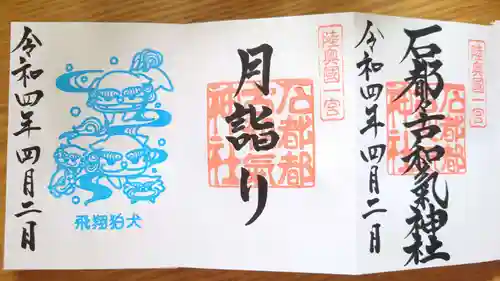 陸奥國一宮
石都々古和氣神社
石都都古和氣神社
令和四年四月二日
陸奥國一宮
月詣り
石都都古和氣神社
飛翔狛犬
令和四年四月二日